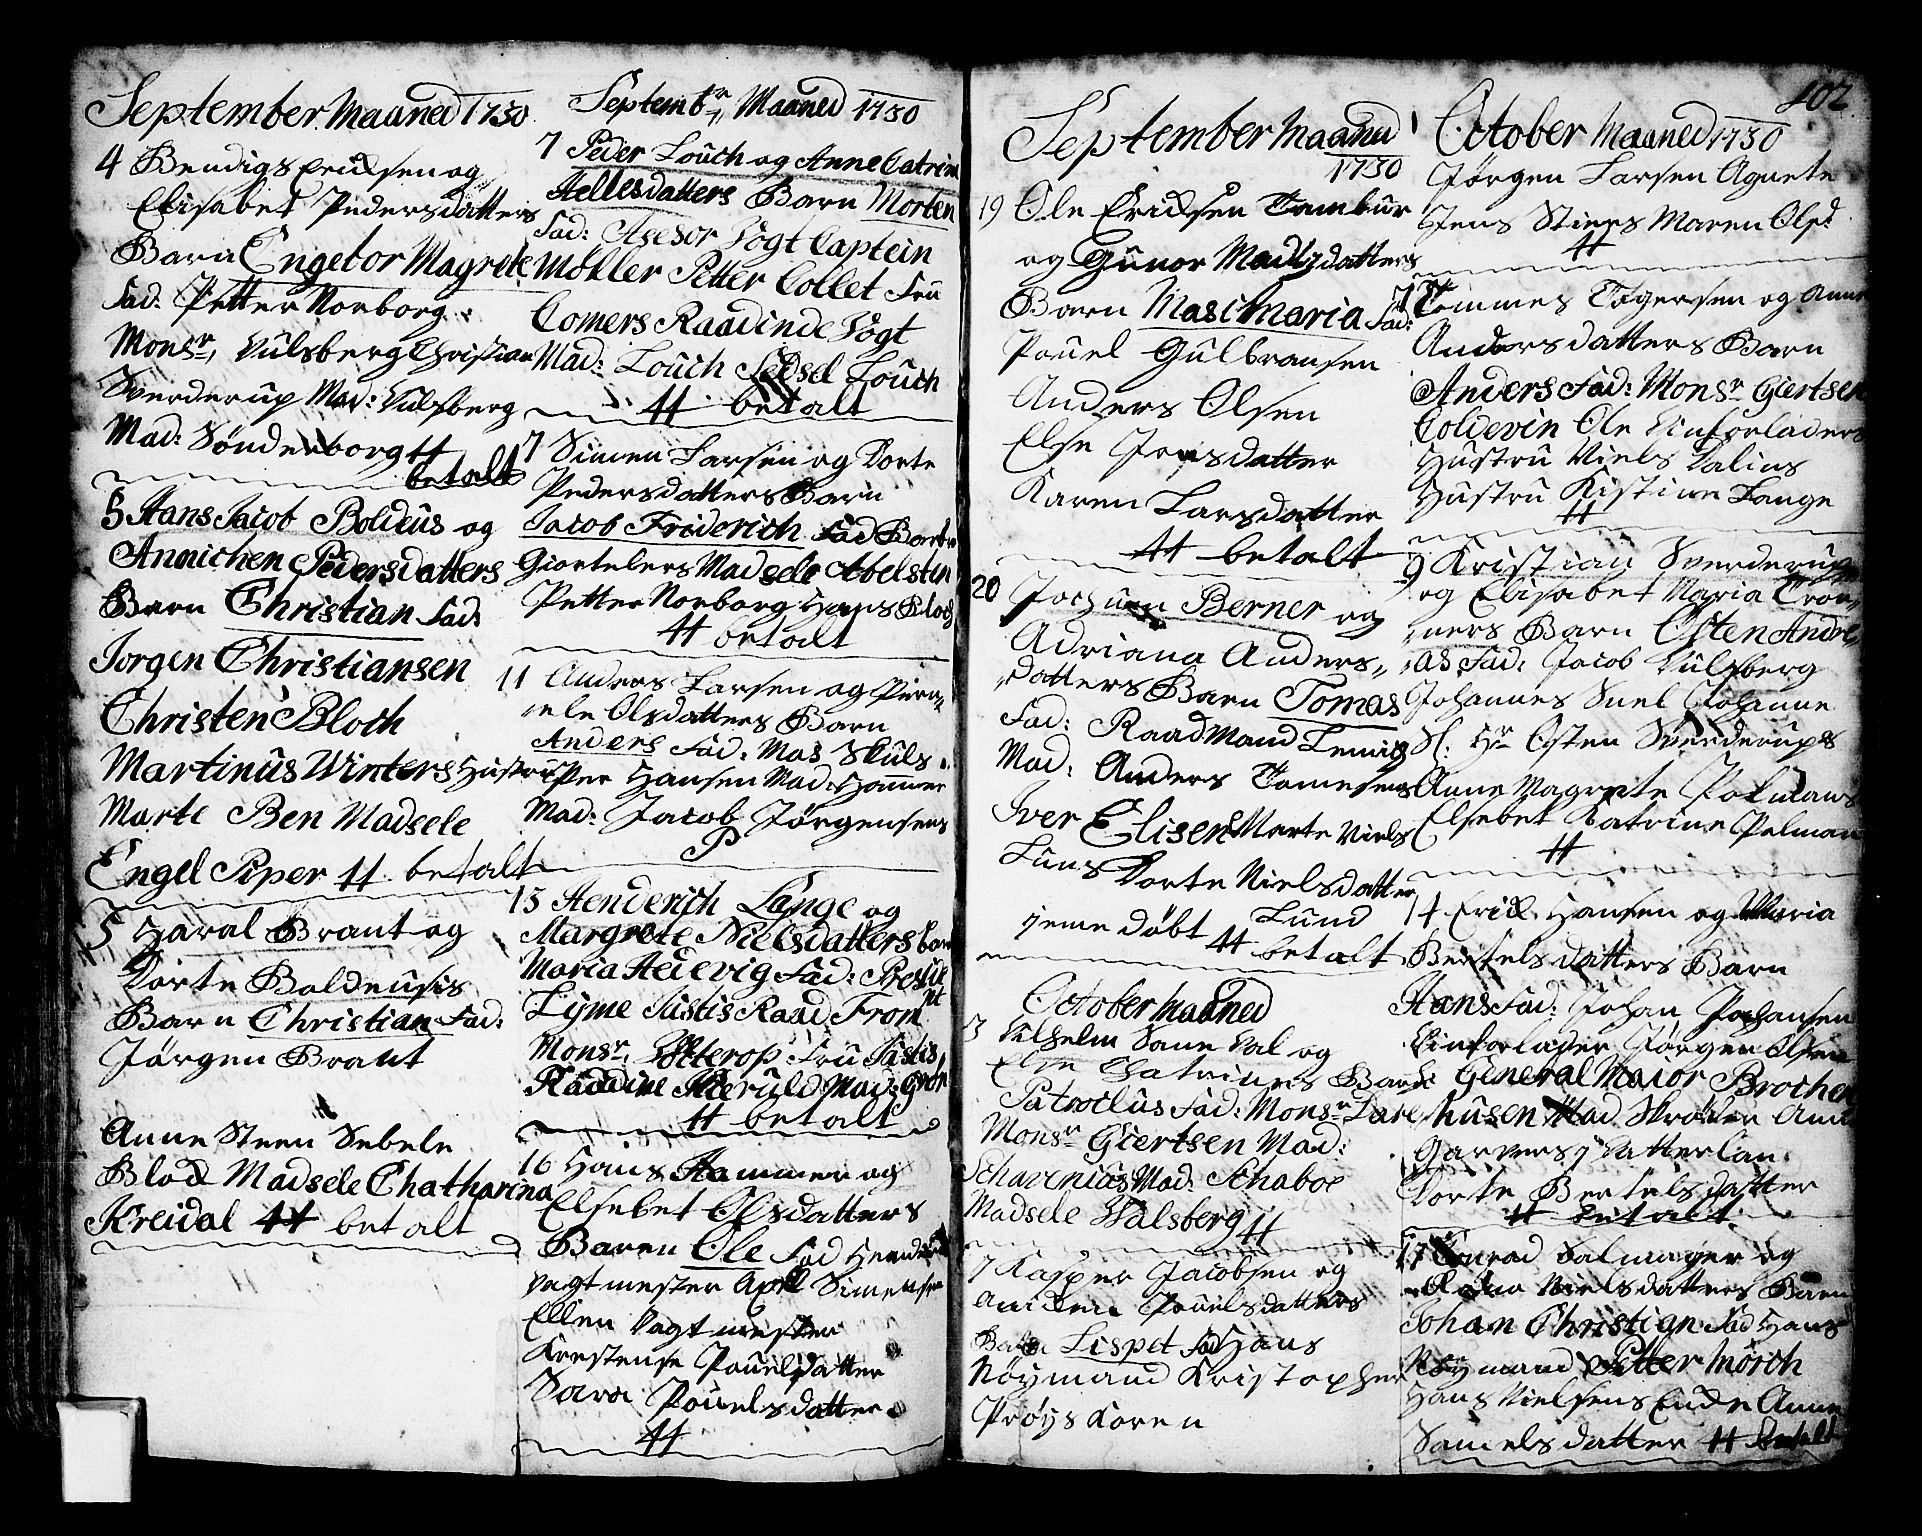 September Maaned 1730
4 Bendigs Ericksen og
Elisabet Pedersdatters
Barn Engebor Magrete
Fad: Petter Norborg
Monsr, Vulsberg Christian
Sverderup Mad: Vulsberg
Mad: Sønderborg 44
betalt
5 Hans Jacob Boldeus og
Annichen Pedersdatters
Barn Christian Fad:
Jorgen Christiansen
Christen Bloch
Martinus Winters Hustru
Marte Ben Madsele
Engel Piper 44 betalt
5 Haral Brant og
Dorte Boldeusis
Barn Christian Fad:
Jørgen Brant
Anne Steen Sebele
Blod Madsele Chatharina
Kreidal 44 betalt
Septembr, Maaned 1730
7 Peder Louch og Anne Catrin
Hellesdatters Barn Morten
Fad: Asesor Vogt Captein
Møller Petter Collet Fru
Comers Raadinde Vogt
Mad: Louch Sedsel Louch
44 betalt
7 Simen Larsen og Dorte
Pedersdatters Barn
Jacob Friderich Fad
Giortelers Madsele Abelsten
Petter Norborg Hans Bloch
44 betalt
11 Anders Larsen og
nele Olsdatters Barn
Anders Fad: Mas Skuls
Per Hansen Mad: Hammer
Mad: Jacob Jørgensens
P
13 Henderich Lange og
Margrete Nielsdatters
Maria Hedevig Fad:
Lyme Justis Raad From
Monsr, Fru Justis
Raadine Mad:
44 betalt
16 Hans Hammer og
Elsebet Olsdatters
Baren Ole Fad
Vagtmester Simensen
Ellen Vagtmester
Krestense Pouelsdatter
Sara Pouelsdatter
44
September Maaned
1730
19 Ole Ericksen Tambur
og Gunor Madsdatters
Barn Masi Maria Fad:
Pouel Gulbransen
Anders Olsen
Else Jensdatter
Karen Larsdatter
44 betalt
20 Jochum Berner og
Adriana Anders,,
datters Barn Tomas
Fad: Raadmand Lemmig
Mad: Anders Tomesens
Iver Elisen Marte Niels
Luns Dorte Nielsdatter
Lund
jeme døbt 44 betalt
October Maaned
3 Vilhelm Sane Val og
Else Chatrines Barn
Patroclus Fad: Monsr Lare
Monsr Giertsen Mad:
Schavenius Mad: Schaboe
Madsele Valsberg 44
7 Kasper Jacobsen og
Anicken Pouelsdatters
Barn Lispet Fad Hans
Nøymand Kristopher
Prøys Koren
102
October Maaned 1730
Jørgen Larsen Agnete
Jens Stiers Maren Olsd
44
Tommes Togersen og Anne
Andersdatters Barn
Anders Fad: Monsr Giertsen
Coldevin Ole Vinforladers
Hustru Niels Dalius
Hustru Kistine Lange
44
9 Kristian Sverderup
og Elisabet Maria Cron,,
ners Barn Osten Andre,,
as Fad: Jacob Vulsberg
Johannes Suel Johanne
Sl: Hr Osten Sverderups
Anne Magrete Polmans
Elsebet Katrine Pelman
44
14 Erick Hansen og Maria
Bertelsdatters Barn
Hans Fad: Johan Johansen
Vinforlader Jørgen Olsen
General Maior Brochen
husen Mad Skrøder
Garvers
Dorte Bertelsdatter
44 betalt
17 Conrad Salmager og
Nielsdatters Barn
Johan Christian Fad Hans
Nøymand Petter Mørch
Hans Nielsens Encke Anne
Samelsdatter 44 betalt